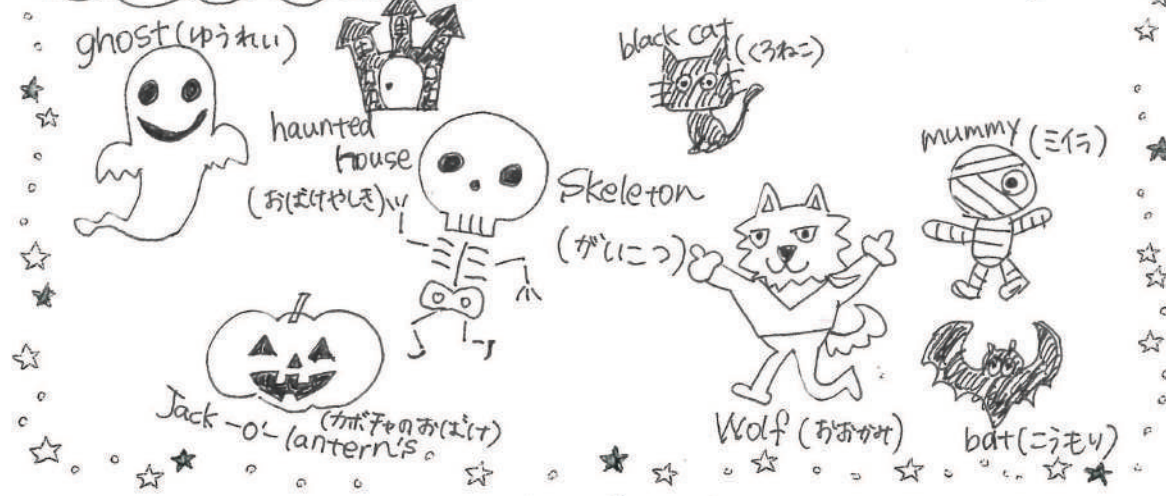 ghost(ゆうれい)
haunted
house
(おばけやしき)
black cat
(くろねこ)
Skeleton
(がいこつ)
mummy(ミイラ)
Jack-o'-lantern's
(カボチャのおばけ)
Wolf(おおかみ)
bat(こうもり)